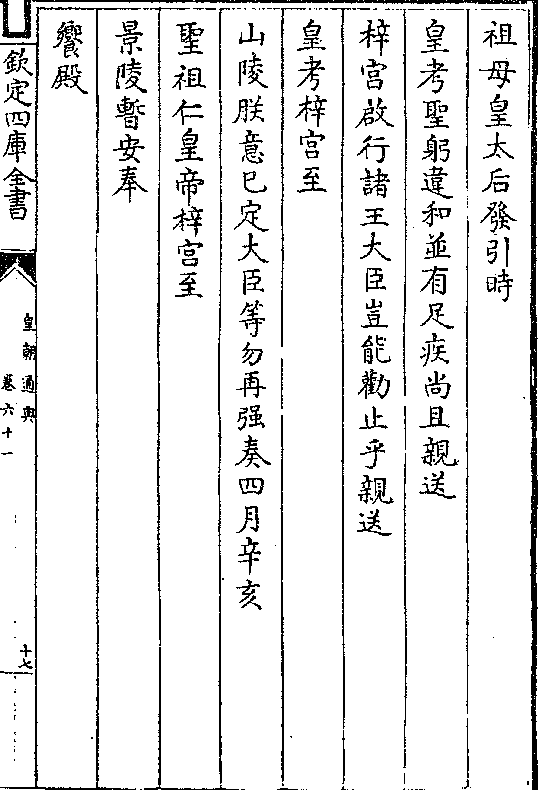 祖母皇太后發引時
皇考聖躬違和並有足疾尚且親送
梓宫啟行諸王大臣豈能勸止乎親送
皇考梓宫至
山陵朕意已定大臣等勿再强奏四月辛亥
聖祖仁皇帝梓宫至
景陵暫安奉
饗殿
欽定四庫全書
皇朝通典
卷六十一
十七